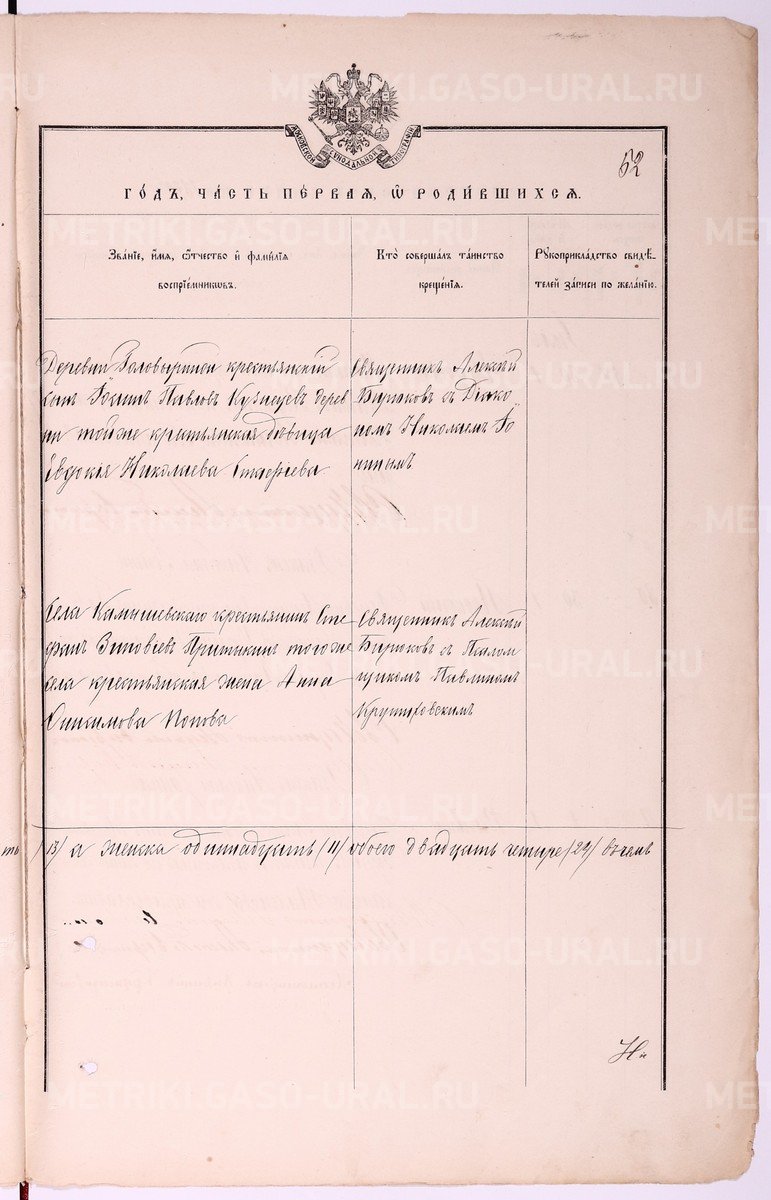 МОСКОВСКОЙ СѴНОДАЛЬНОЙ ТИПОГРАФІИ
62
ГО́ДЪ, ЧА́СТЬ ПЕ́РВАЯ, Ѡ РОДИ́ВШИХСЯ.
Зва́ніе, и́мя, ѻ҆́тчество и҆ фами́лїя
воспрїе́мникѡвъ.
Кто̀ соверша́лъ та́инство
креще́нїя.
Рꙋкоприкла́дство свидѣ́-
телей за́писи по жела́нїю.
Деревни Головыриной крестьянскій
сынъ Іоаннъ Павловъ Кузнецовъ дерев
ни той же крестьянская дѣвица
Евдокія Николаева
Священникъ Алексій
Бирюковъ съ Діако
номъ Николаемъ Іо
нинымъ
Села Камышевскаго крестьянинъ Сте
фанъ Зиновьевъ того же
села крестьянская жена Анна
Онисимова Попова
Священникъ Алексій
Бирюковъ съ Псалом
щикомъ Павлиномъ
Крутиховскимъ
ть /13/ а женска одиннадцать /11/ обоего двадцать четыре /24/ въ чемъ
METRIKI.GASO-URAL.RU